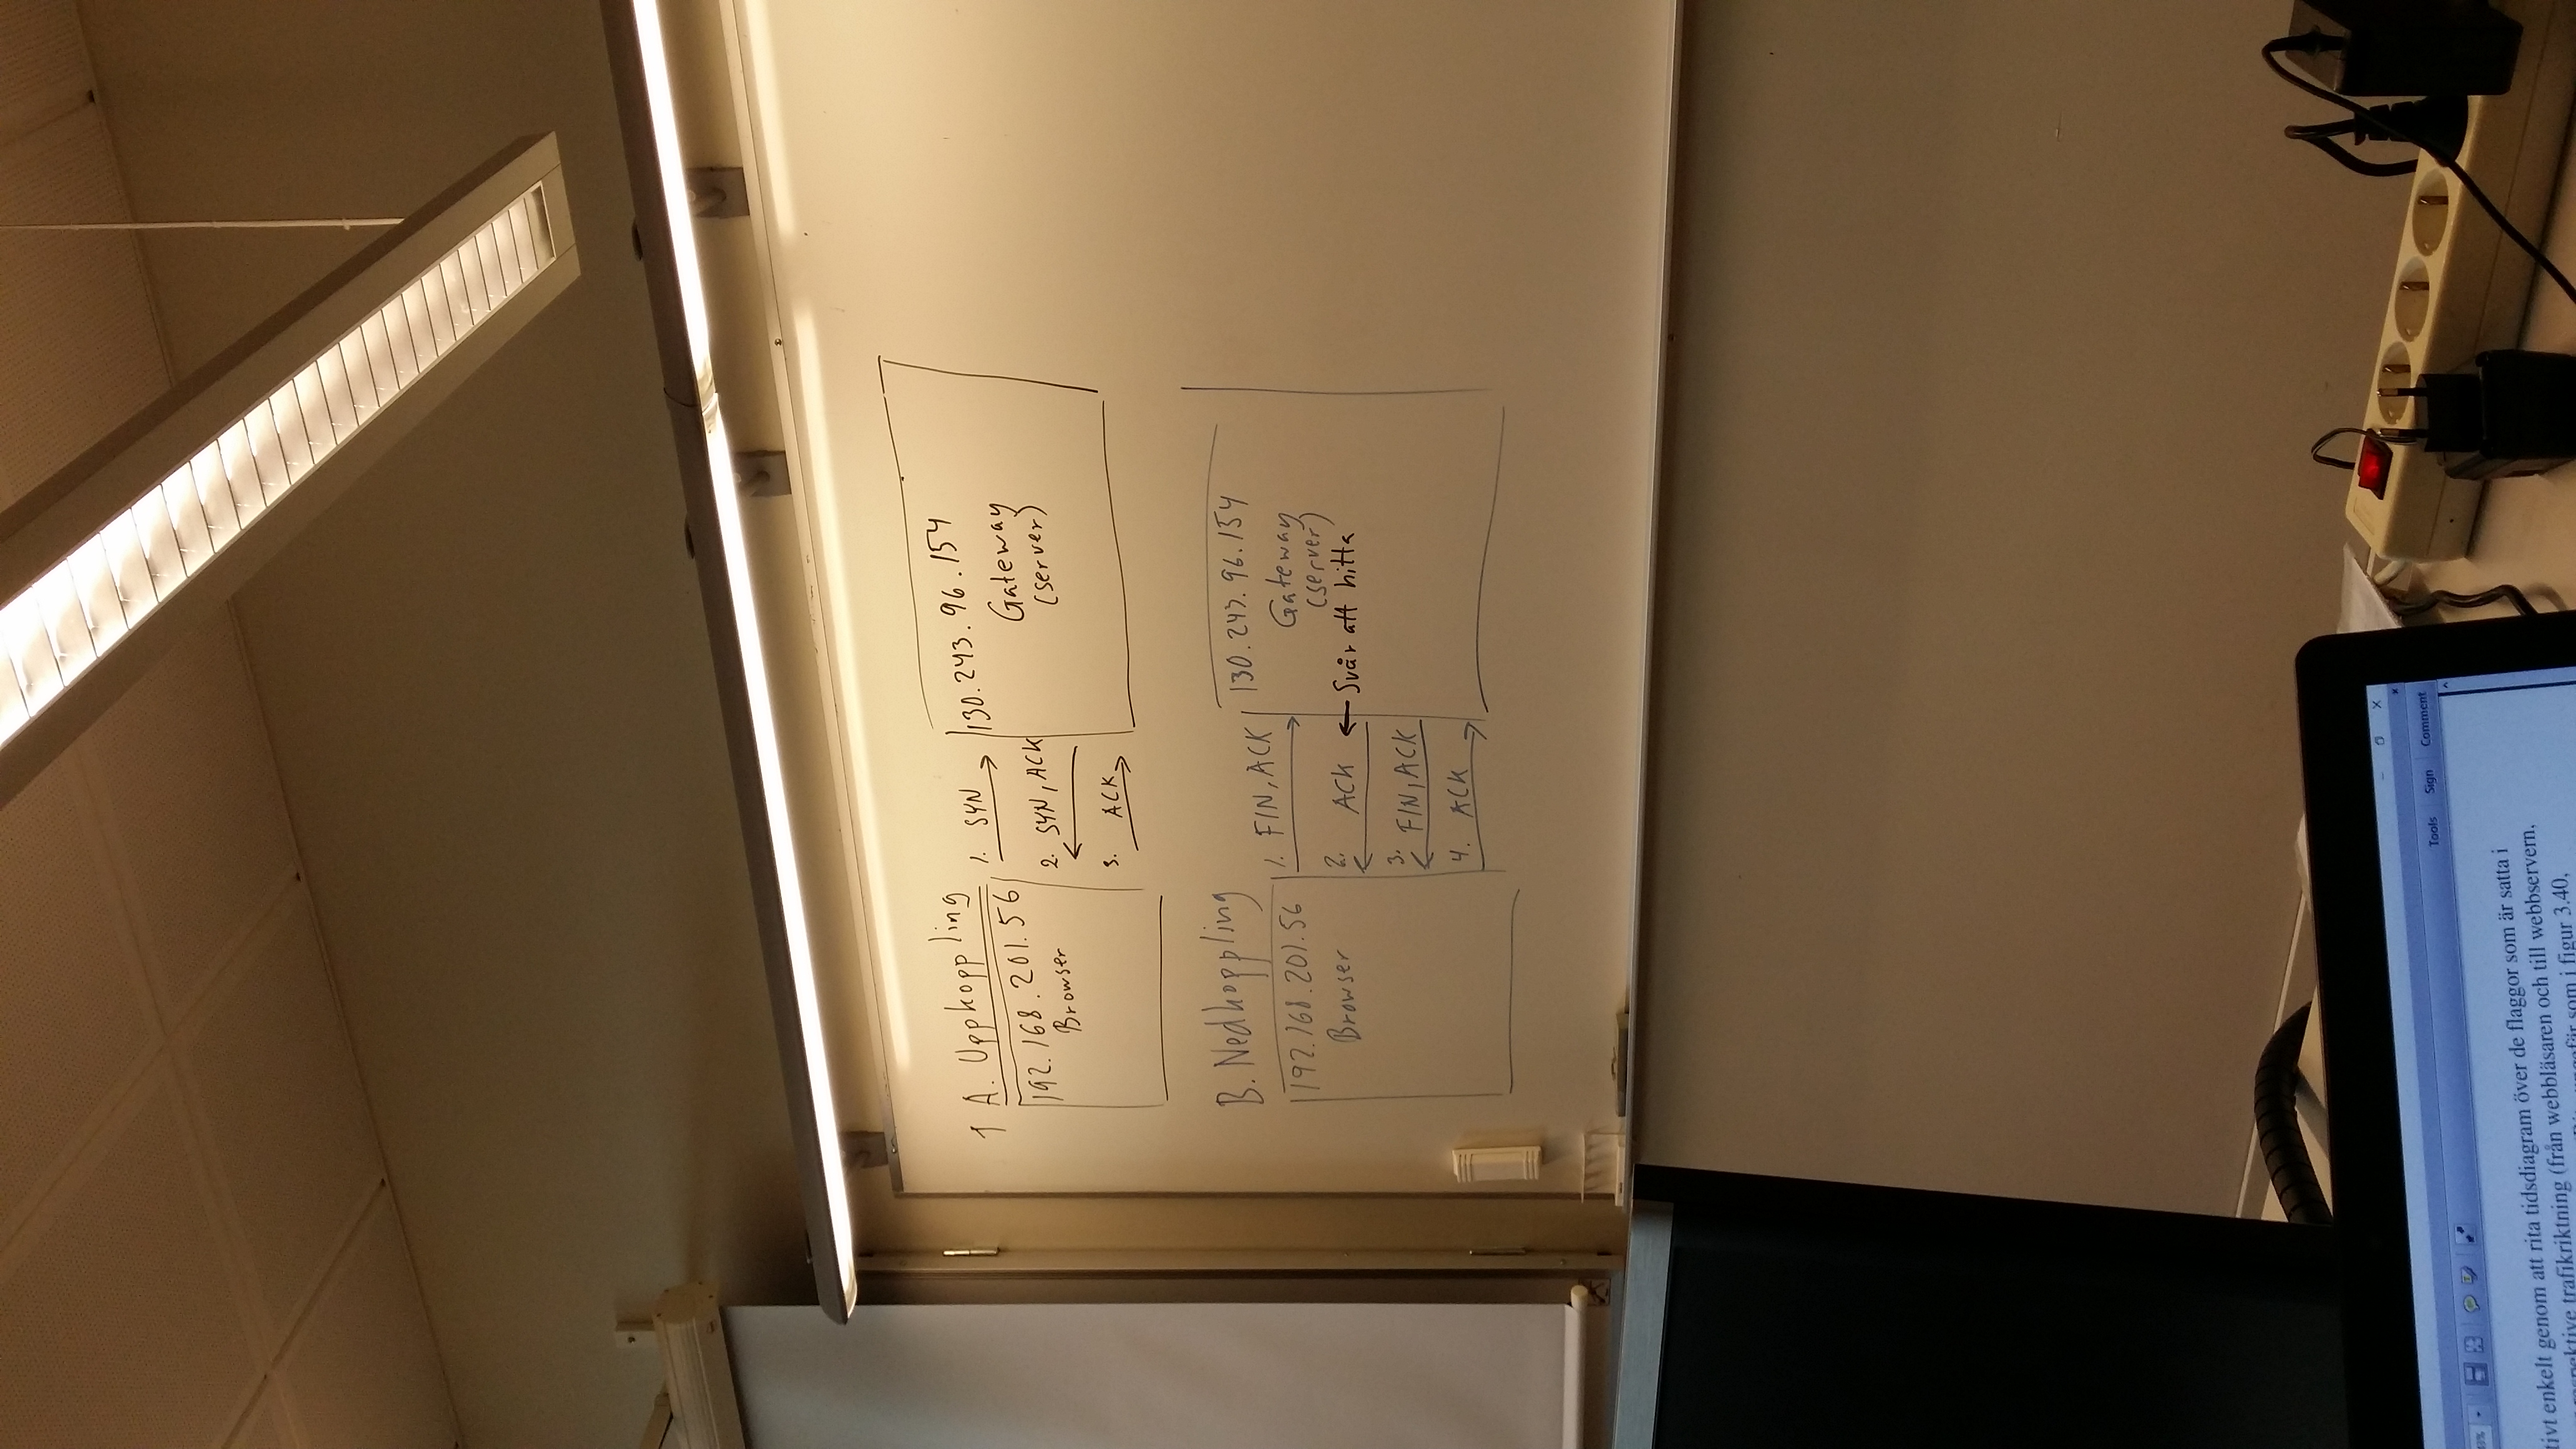 1 A. Uppkoppling
192.168.201.56
Browser
1. SYN
2. SYN, ACK
3. ACK
130.243.96.154
Gateway
(server)
B. Nedkoppling
192.168.201.56
Browser
1. FIN, ACK
2. ACK
3. FIN, ACK
4. ACK
130.243.96.154
Gateway
(server)
← Svår att hitta
Tools Sign Comment
enkelt genom att rita tidsdiagram över de flaggor som är satta i
trafikriktning (från webbläsaren och till webbservern,
som i figur 3.40,